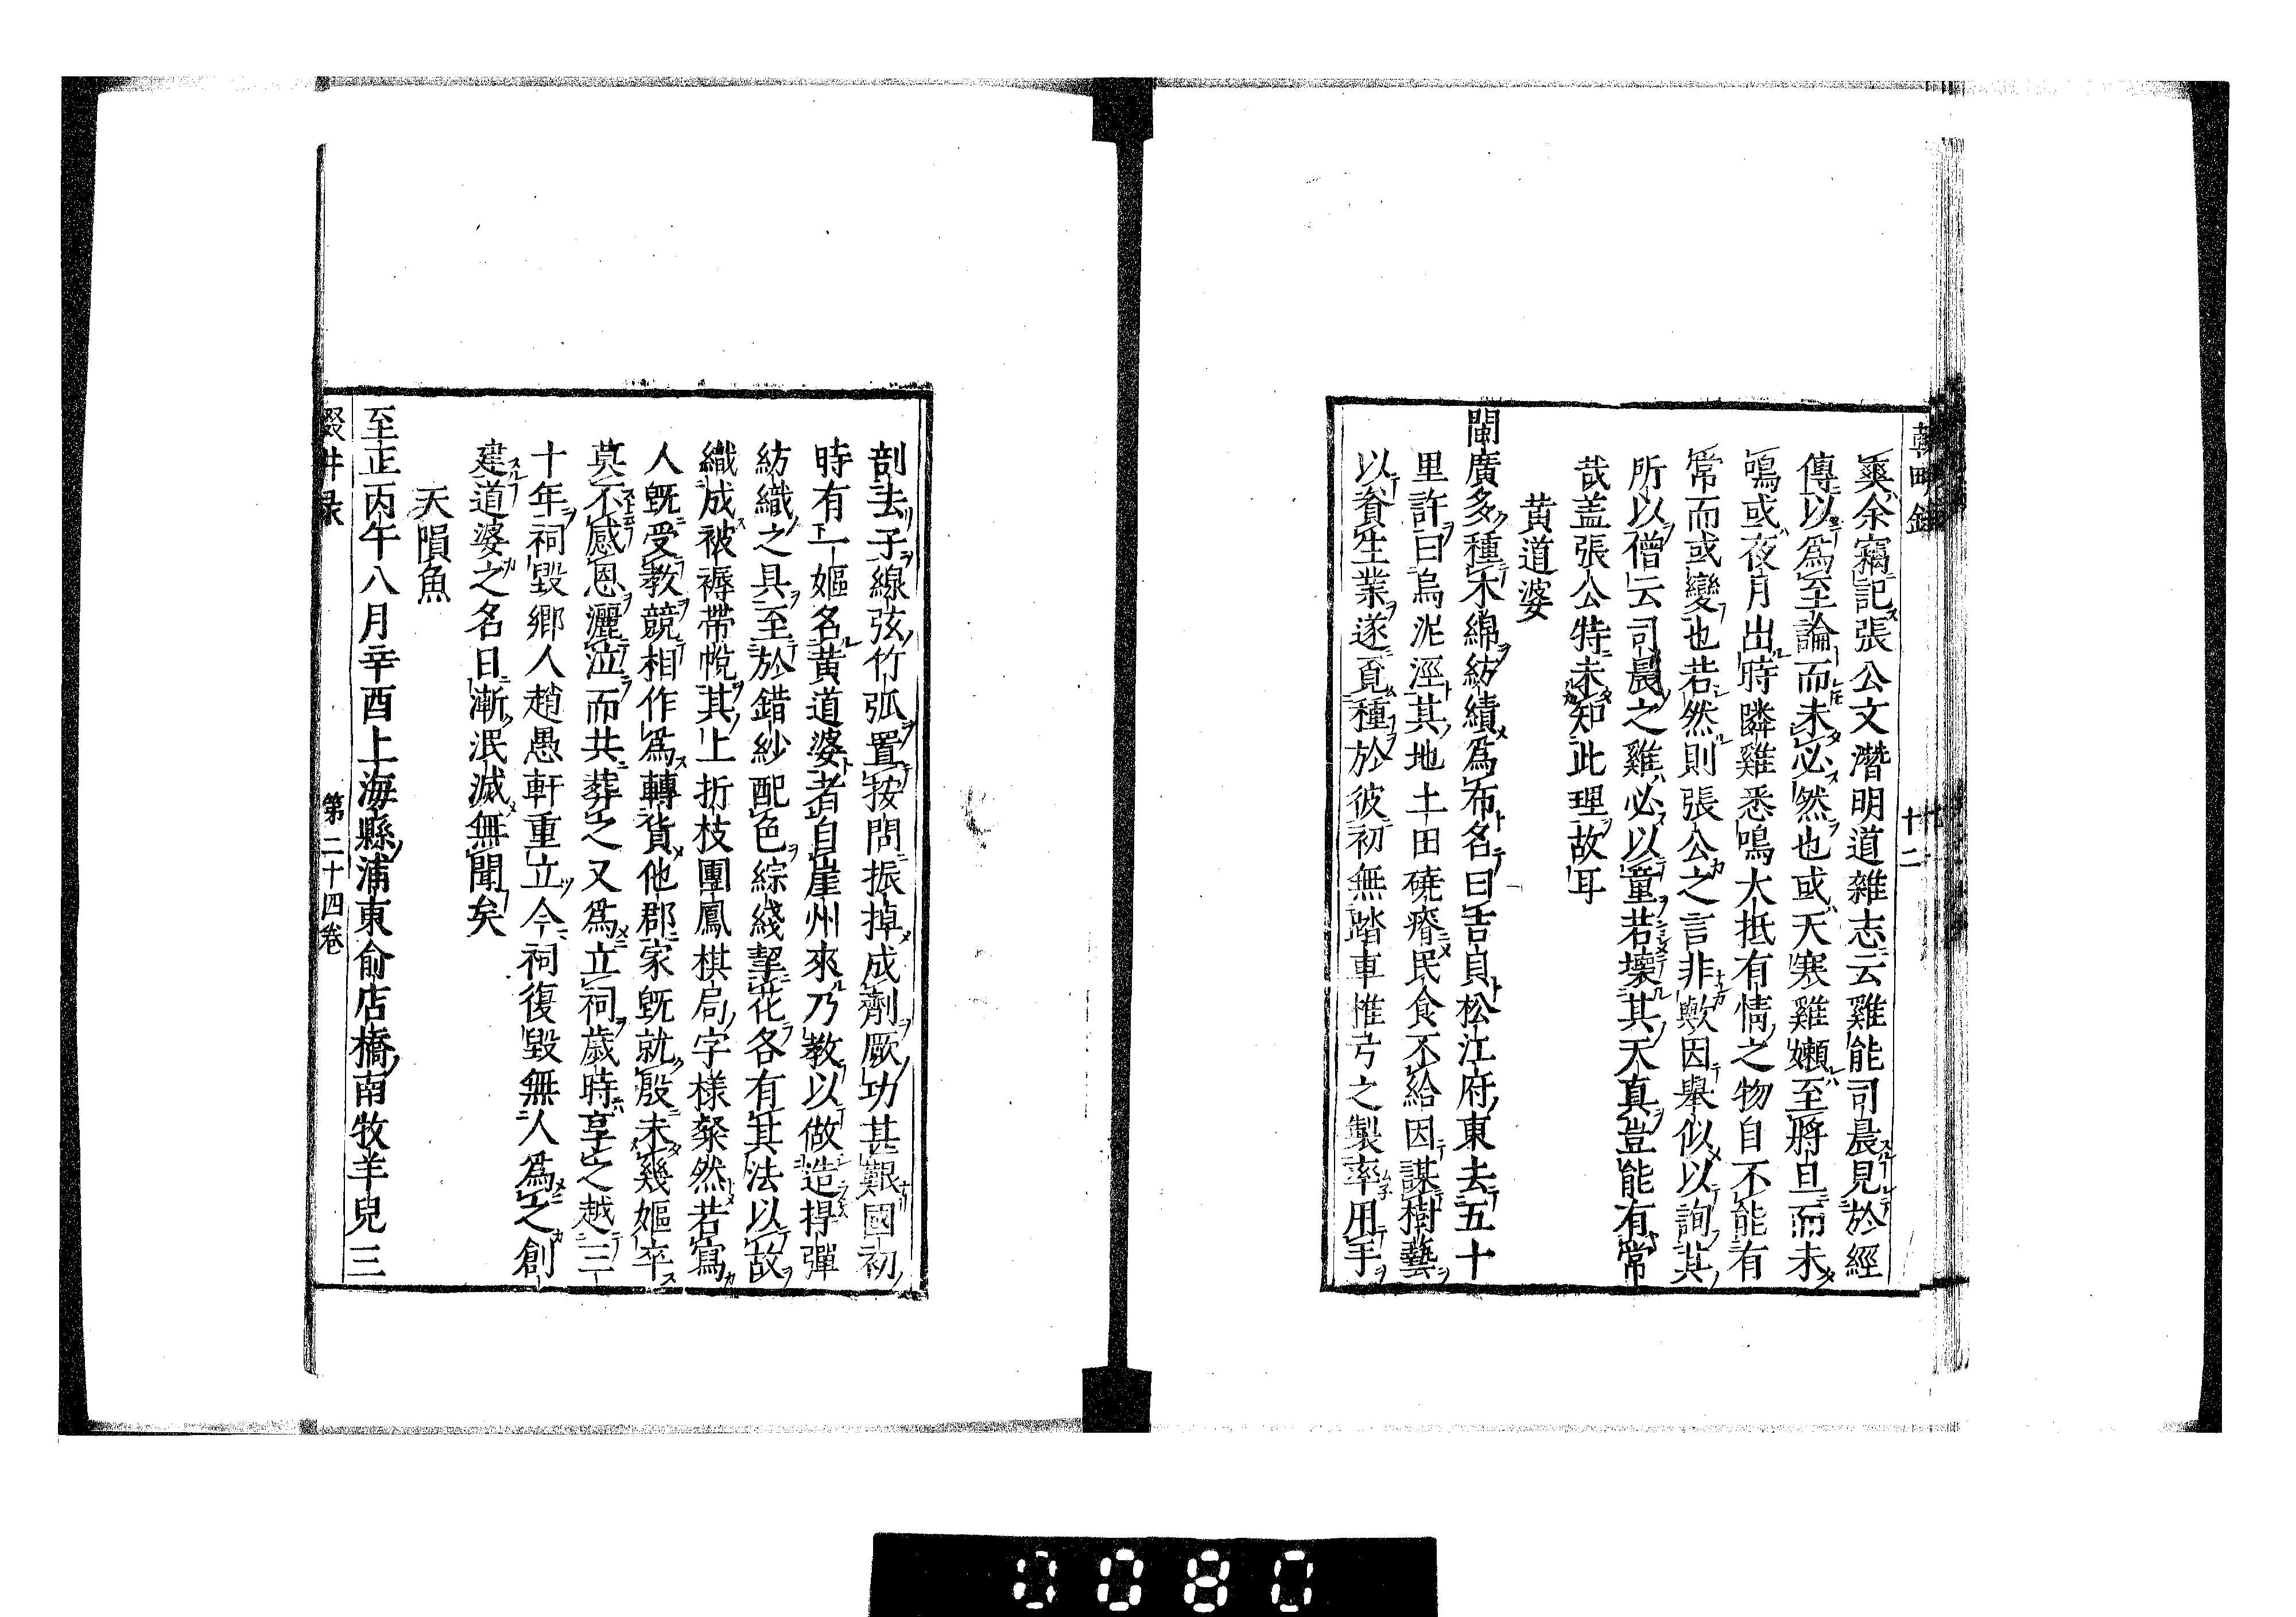 輟畊錄
十二
爽余竊記張公文潛明道雜志云雞能司晨見於經
傳以為至論而未必然也或天寒雞嬾至將旦而未
鳴或夜月出時隣雞悉鳴大抵有情之物自不能有
常而或變也若然則張公之言非歟因舉似以詢其
所以僧云司晨之雞必以童若壞其天真豈能有常
哉盖張公特未知此理故耳
黃道婆
閩廣多種木綿紡績為布名曰吉貝松江府東去五十
里許曰烏泥涇其地土田磽瘠民食不給因謀樹藝
以資生業遂覓種於彼初無踏車惟弓之製率用手
剖去子線弦竹弧置按問振掉成劑厥功甚艱國初
時有一嫗名黃道婆者自崖州來乃教以做造捍彈
紡織之具至於錯紗配色綜綫挈花各有其法以故
織成被褥帶帨其上折枝團鳳棋局字樣粲然若寫
人既受教競相作為轉貨他郡家既就殷未幾嫗卒
莫不感恩灑泣而共葬之又為立祠歲時享之越三
十年祠毀鄉人趙愚軒重立今祠復毀無人為之創
建道婆之名日漸泯滅無聞矣
天隕魚
至正丙午八月辛酉上海縣浦東俞店橋南牧羊兒三
輟畊录
第二十四卷
0080